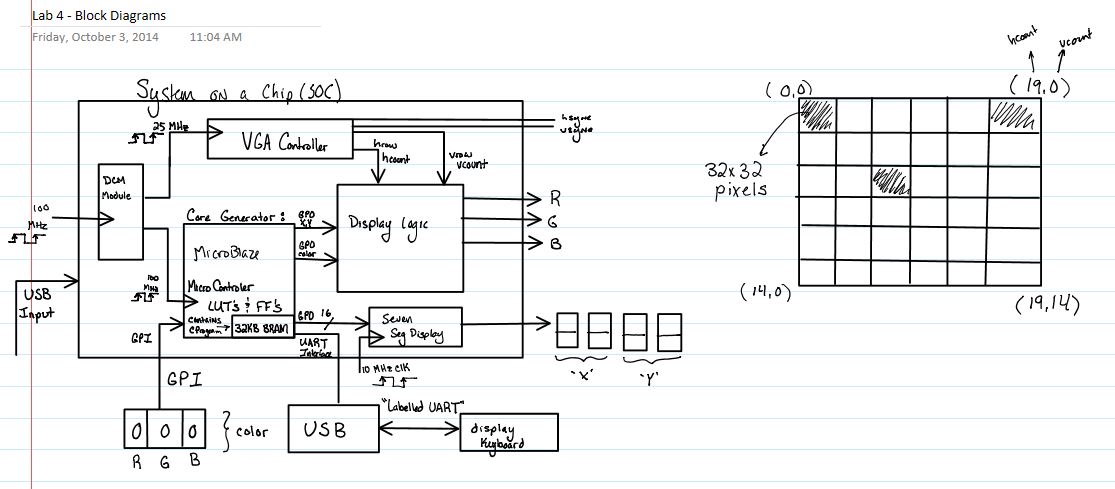 Lab 4 - Block Diagrams
Friday, October 3, 2014 11:04 AM
System on a Chip (SOC)
25 MHz
VGA Controller
hsync
vsync
hrow
hcount
vrow
vcount
DCM
Module
100
MHz
Core Generator:
MicroBlaze
MicroControler
LUT's & FF's
contains
CProgram
32KB BRAM
100
MHz
GPO
X,Y
GPO
color
Display Logic
R
G
B
USB
Input
GPI
GPO 16
UART
Interface
Seven
Seg Display
10 MHz Clk
"X" "Y"
GPI
0 0 0
R G B
color
USB
"Labelled UART"
display
Keyboard
hcount
vcount
(0,0)
(19,0)
32x32
pixels
(14,0)
(19,14)